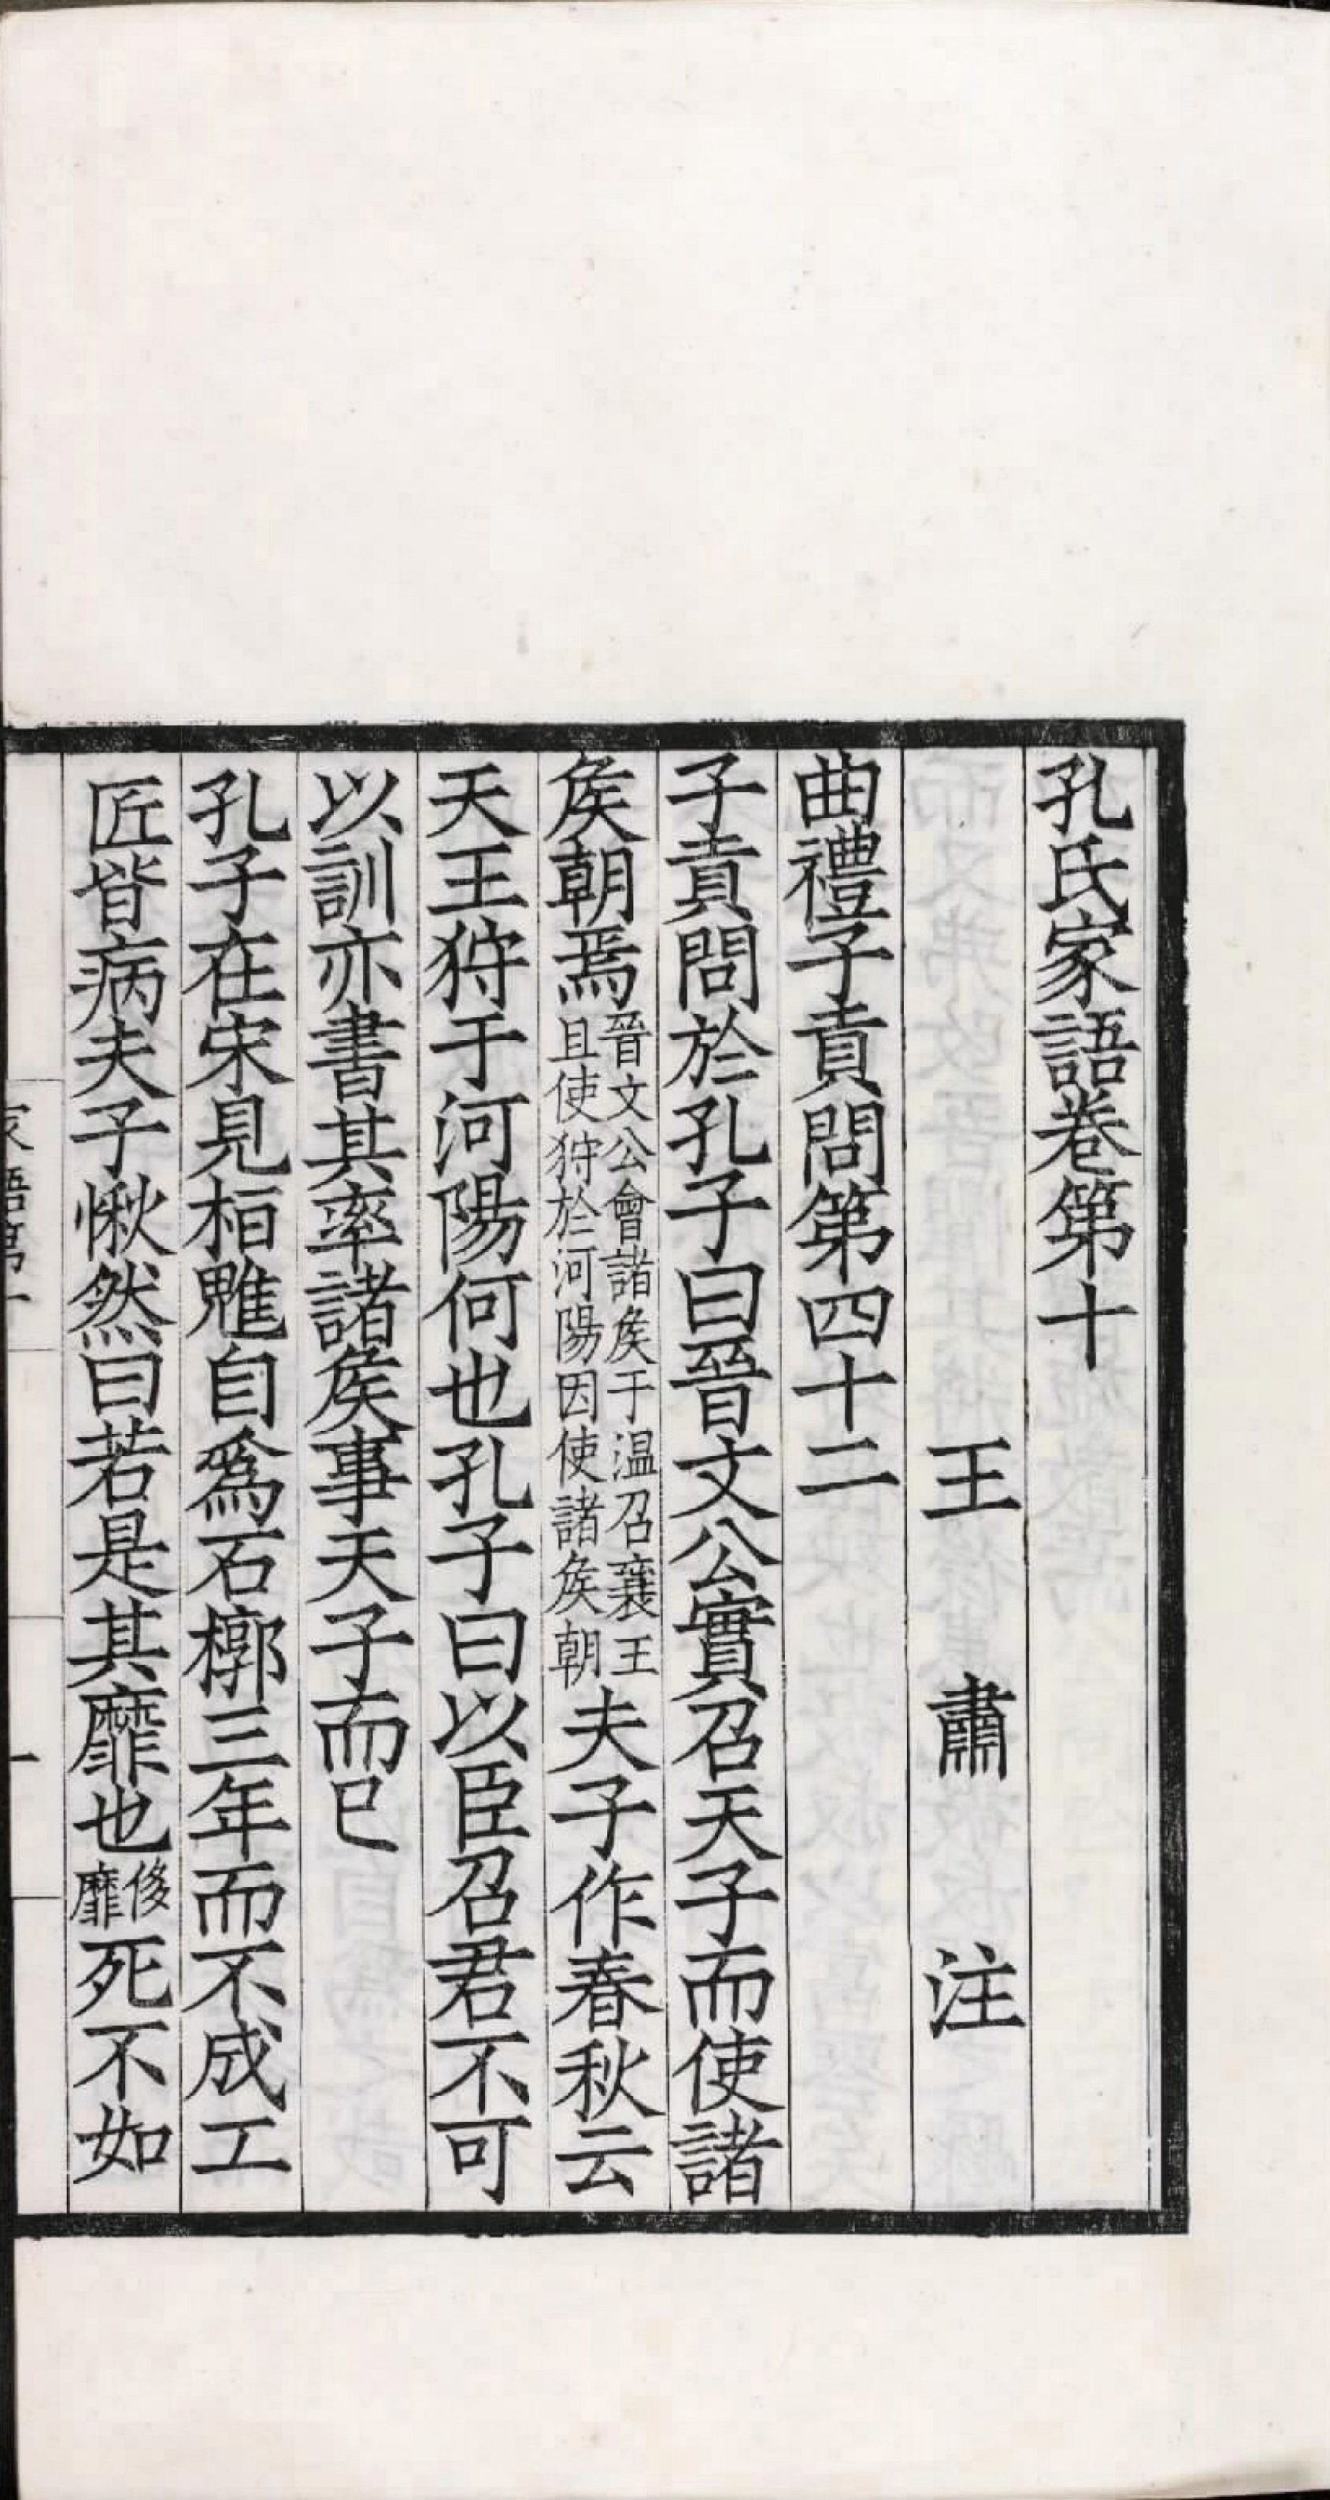 孔氏家語卷第十
王肅注
曲禮子貢問第四十二
子貢問於孔子曰晉文公實召天子而使諸
矦朝焉晉文公會諸矦于温召襄王且使狩於河陽因使諸矦朝夫子作春秋云
天王狩于河陽何也孔子曰以臣召君不可
以訓亦書其率諸矦事天子而已
孔子在宋見桓魋自爲石槨三年而不成工
匠皆病夫子愀然曰若是其靡也侈靡死不如